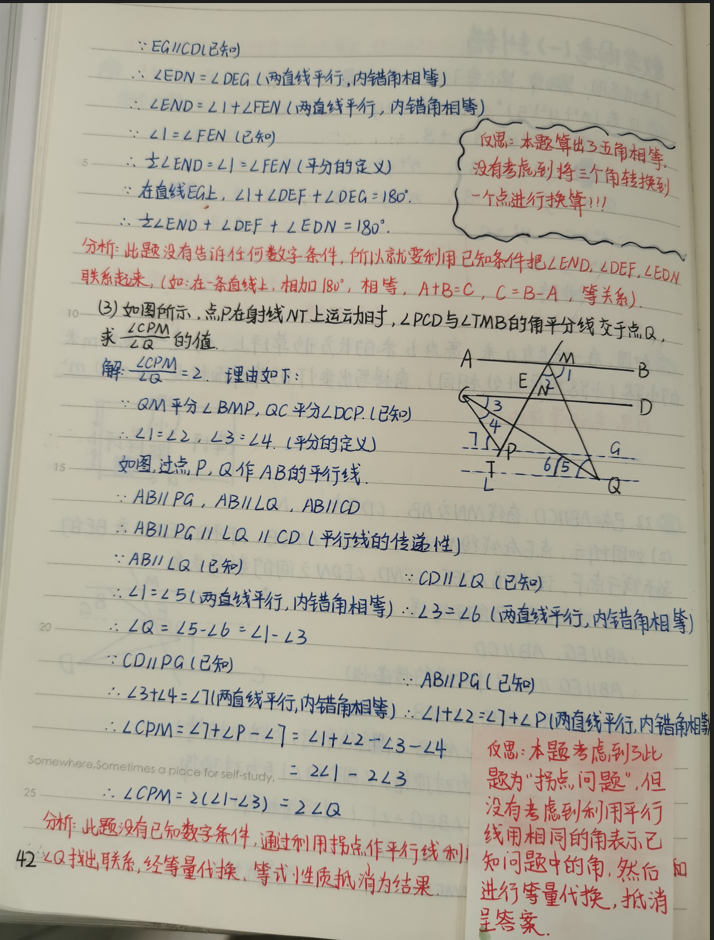 ∵ EG∥CD(已知)
∴ ∠EDN = ∠DEG (两直线平行,内错角相等)
∴ ∠END = ∠1 + ∠FEN (两直线平行, 内错角相等)
∵ ∠1 = ∠FEN (已知)
∴ ½∠END = ∠1 = ∠FEN (平分的定义)
∵ 在直线EG上, ∠1 + ∠DEF + ∠DEG = 180°.
∴ ½∠END + ∠DEF + ∠EDN = 180°.
反思: 本题算出了五角相等,
没有考虑到将三个角转换到
一个点进行换算!!!
分析: 此题没有告诉任何数字条件, 所以就要利用已知条件把∠END, ∠DEF, ∠EDN
联系起来, (如:在一条直线上, 相加180°, 相等, A+B=C, C=B-A, 等关系).
(3) 如图所示, 点P在射线NT上运动时, ∠PCD与∠TMB的角平分线交于点Q,
求 ∠CPM/∠Q 的值.
解: ∠CPM/∠Q = 2. 理由如下:
∵ QM平分∠BMP, QC平分∠DCP. (已知)
∴ ∠1=∠2, ∠3=∠4. (平分的定义)
如图, 过点P, Q作AB的平行线.
∵ AB∥PG, AB∥LQ, AB∥CD
∴ AB∥PG∥LQ∥CD (平行线的传递性)
A M B
1
E N 2
C 3 D
4
7 P G
T 6 5
L Q
∵ AB∥LQ (已知) ∵ CD∥LQ (已知)
∴ ∠1=∠5 (两直线平行, 内错角相等) ∴ ∠3=∠6 (两直线平行, 内错角相等)
∴ ∠Q = ∠5-∠6 = ∠1-∠3
∵ CD∥PG (已知) ∵ AB∥PG (已知)
∴ ∠3+∠4=∠7 (两直线平行, 内错角相等) ∴ ∠1+∠2=∠7+∠P (两直线平行, 内错角相等
∴ ∠CPM = ∠7+∠P-∠7 = ∠1+∠2-∠3-∠4
Somewhere.Sometimes a place for self-study. = 2∠1 - 2∠3
∴ ∠CPM = 2(∠1-∠3) = 2∠Q
分析: 此题没有已知数字条件, 通过利用拐点作平行线利
∠Q找出联系, 经等量代换、等式性质抵消为结果.
和
反思: 本题考虑到了此
题为"拐点问题", 但
没有考虑到利用平行
线用相同的角表示已
知问题中的角, 然后
进行等量代换, 抵消
呈答案.
5
10
15
20
25
42